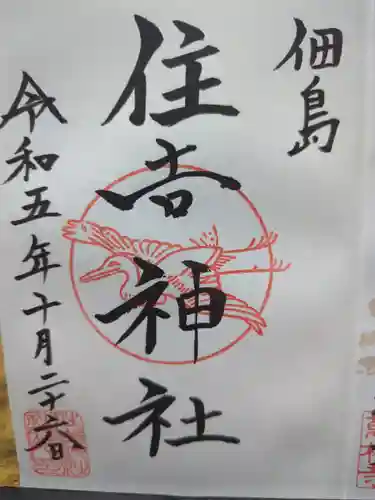 佃島
住吉神社
令和五年十月二十六日